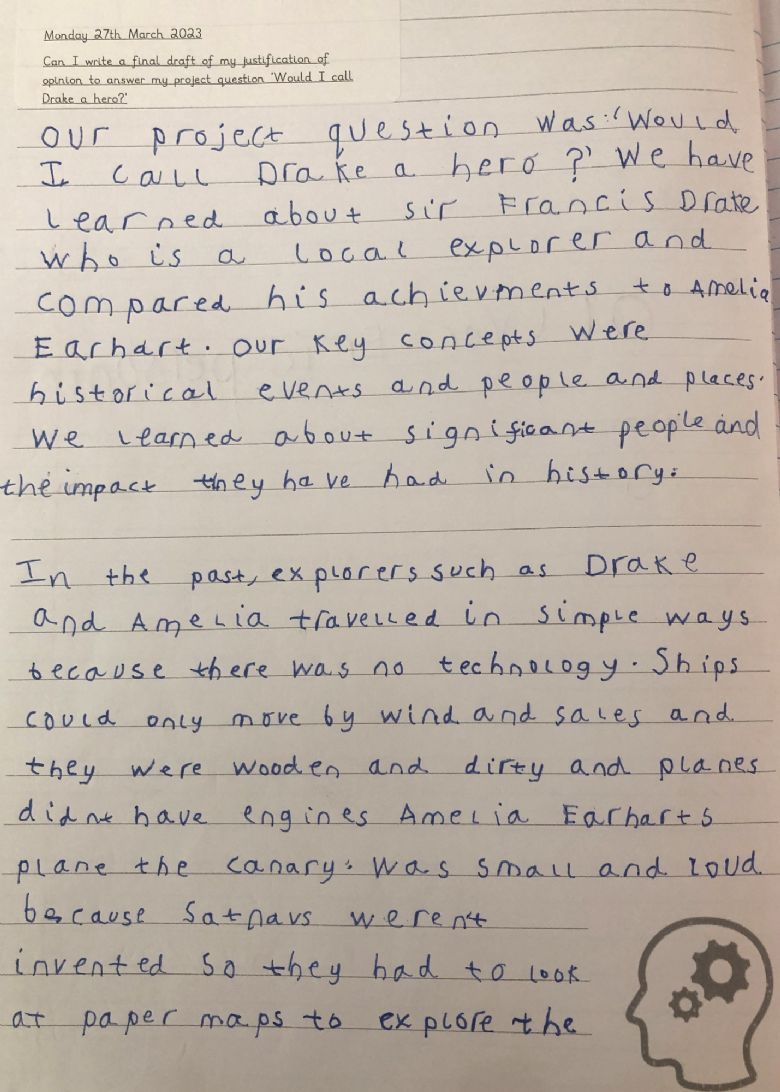 Monday 27th March 2023
Can I write a final draft of my justification of
opinion to answer my project question 'Would I call
Drake a hero?'
our project question was: 'Would
I call Drake a hero?' We have
learned about sir Francis Drake
who is a local explorer and
compared his achievments to Amelia
Earhart. our key concepts were
historical events and people and places.
We learned about significant people and
the impact they have had in history.
In the past, explorers such as Drake
and Amelia travelled in simple ways
because there was no technology. Ships
could only move by wind and sales and
they were wooden and dirty and planes
didnt have engines Amelia Earharts
plane the canary. was small and loud
because Satnavs werent
invented so they had to look
at paper maps to explore the